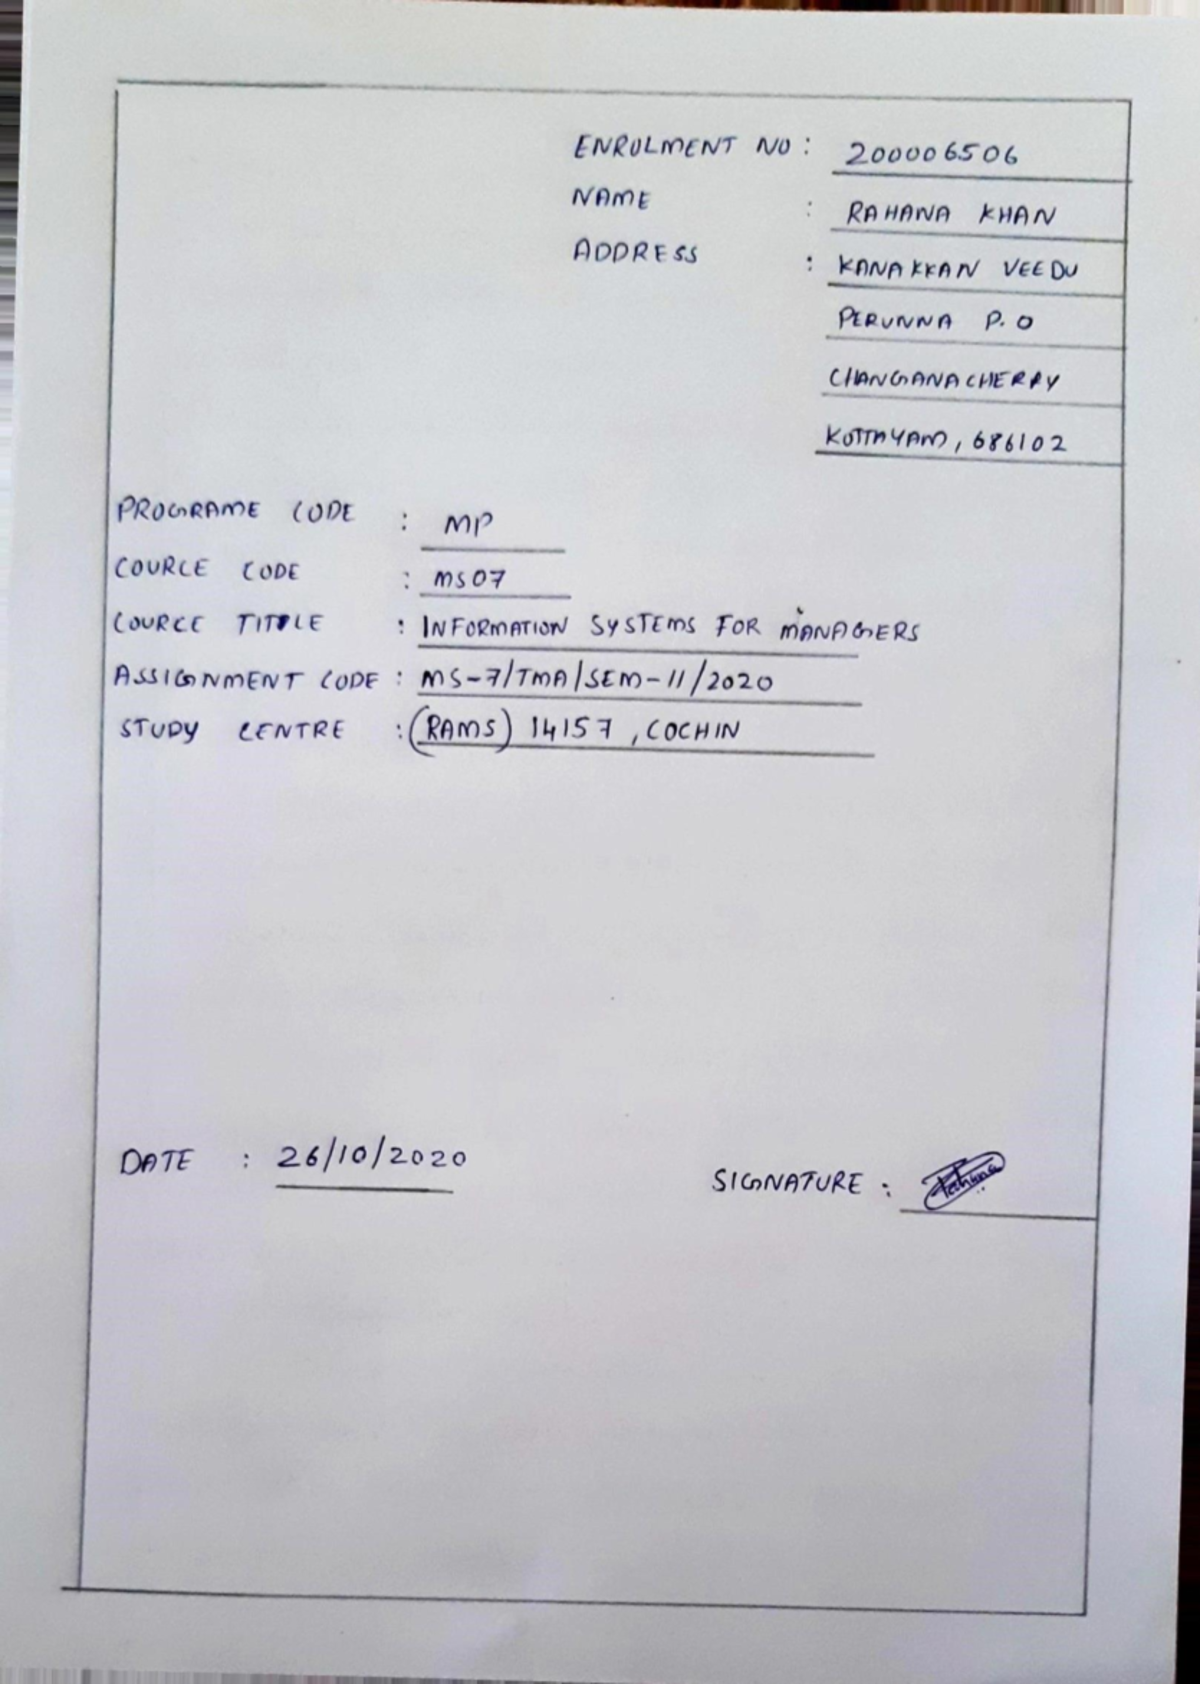 ENROLMENT NO : 200006506
NAME : RAHANA KHAN
ADDRESS : KANAKKAN VEEDU
PERUNNA P.O
CHANGANACHERRY
KOTTAYAM, 686102
PROGRAME CODE : MP
COURCE CODE : MS07
COURCE TITLE : INFORMATION SYSTEMS FOR MANAGERS
ASSIGNMENT CODE : MS-7/TMA/SEM-II/2020
STUDY CENTRE : (RAMS) 14157, COCHIN
DATE : 26/10/2020
SIGNATURE :